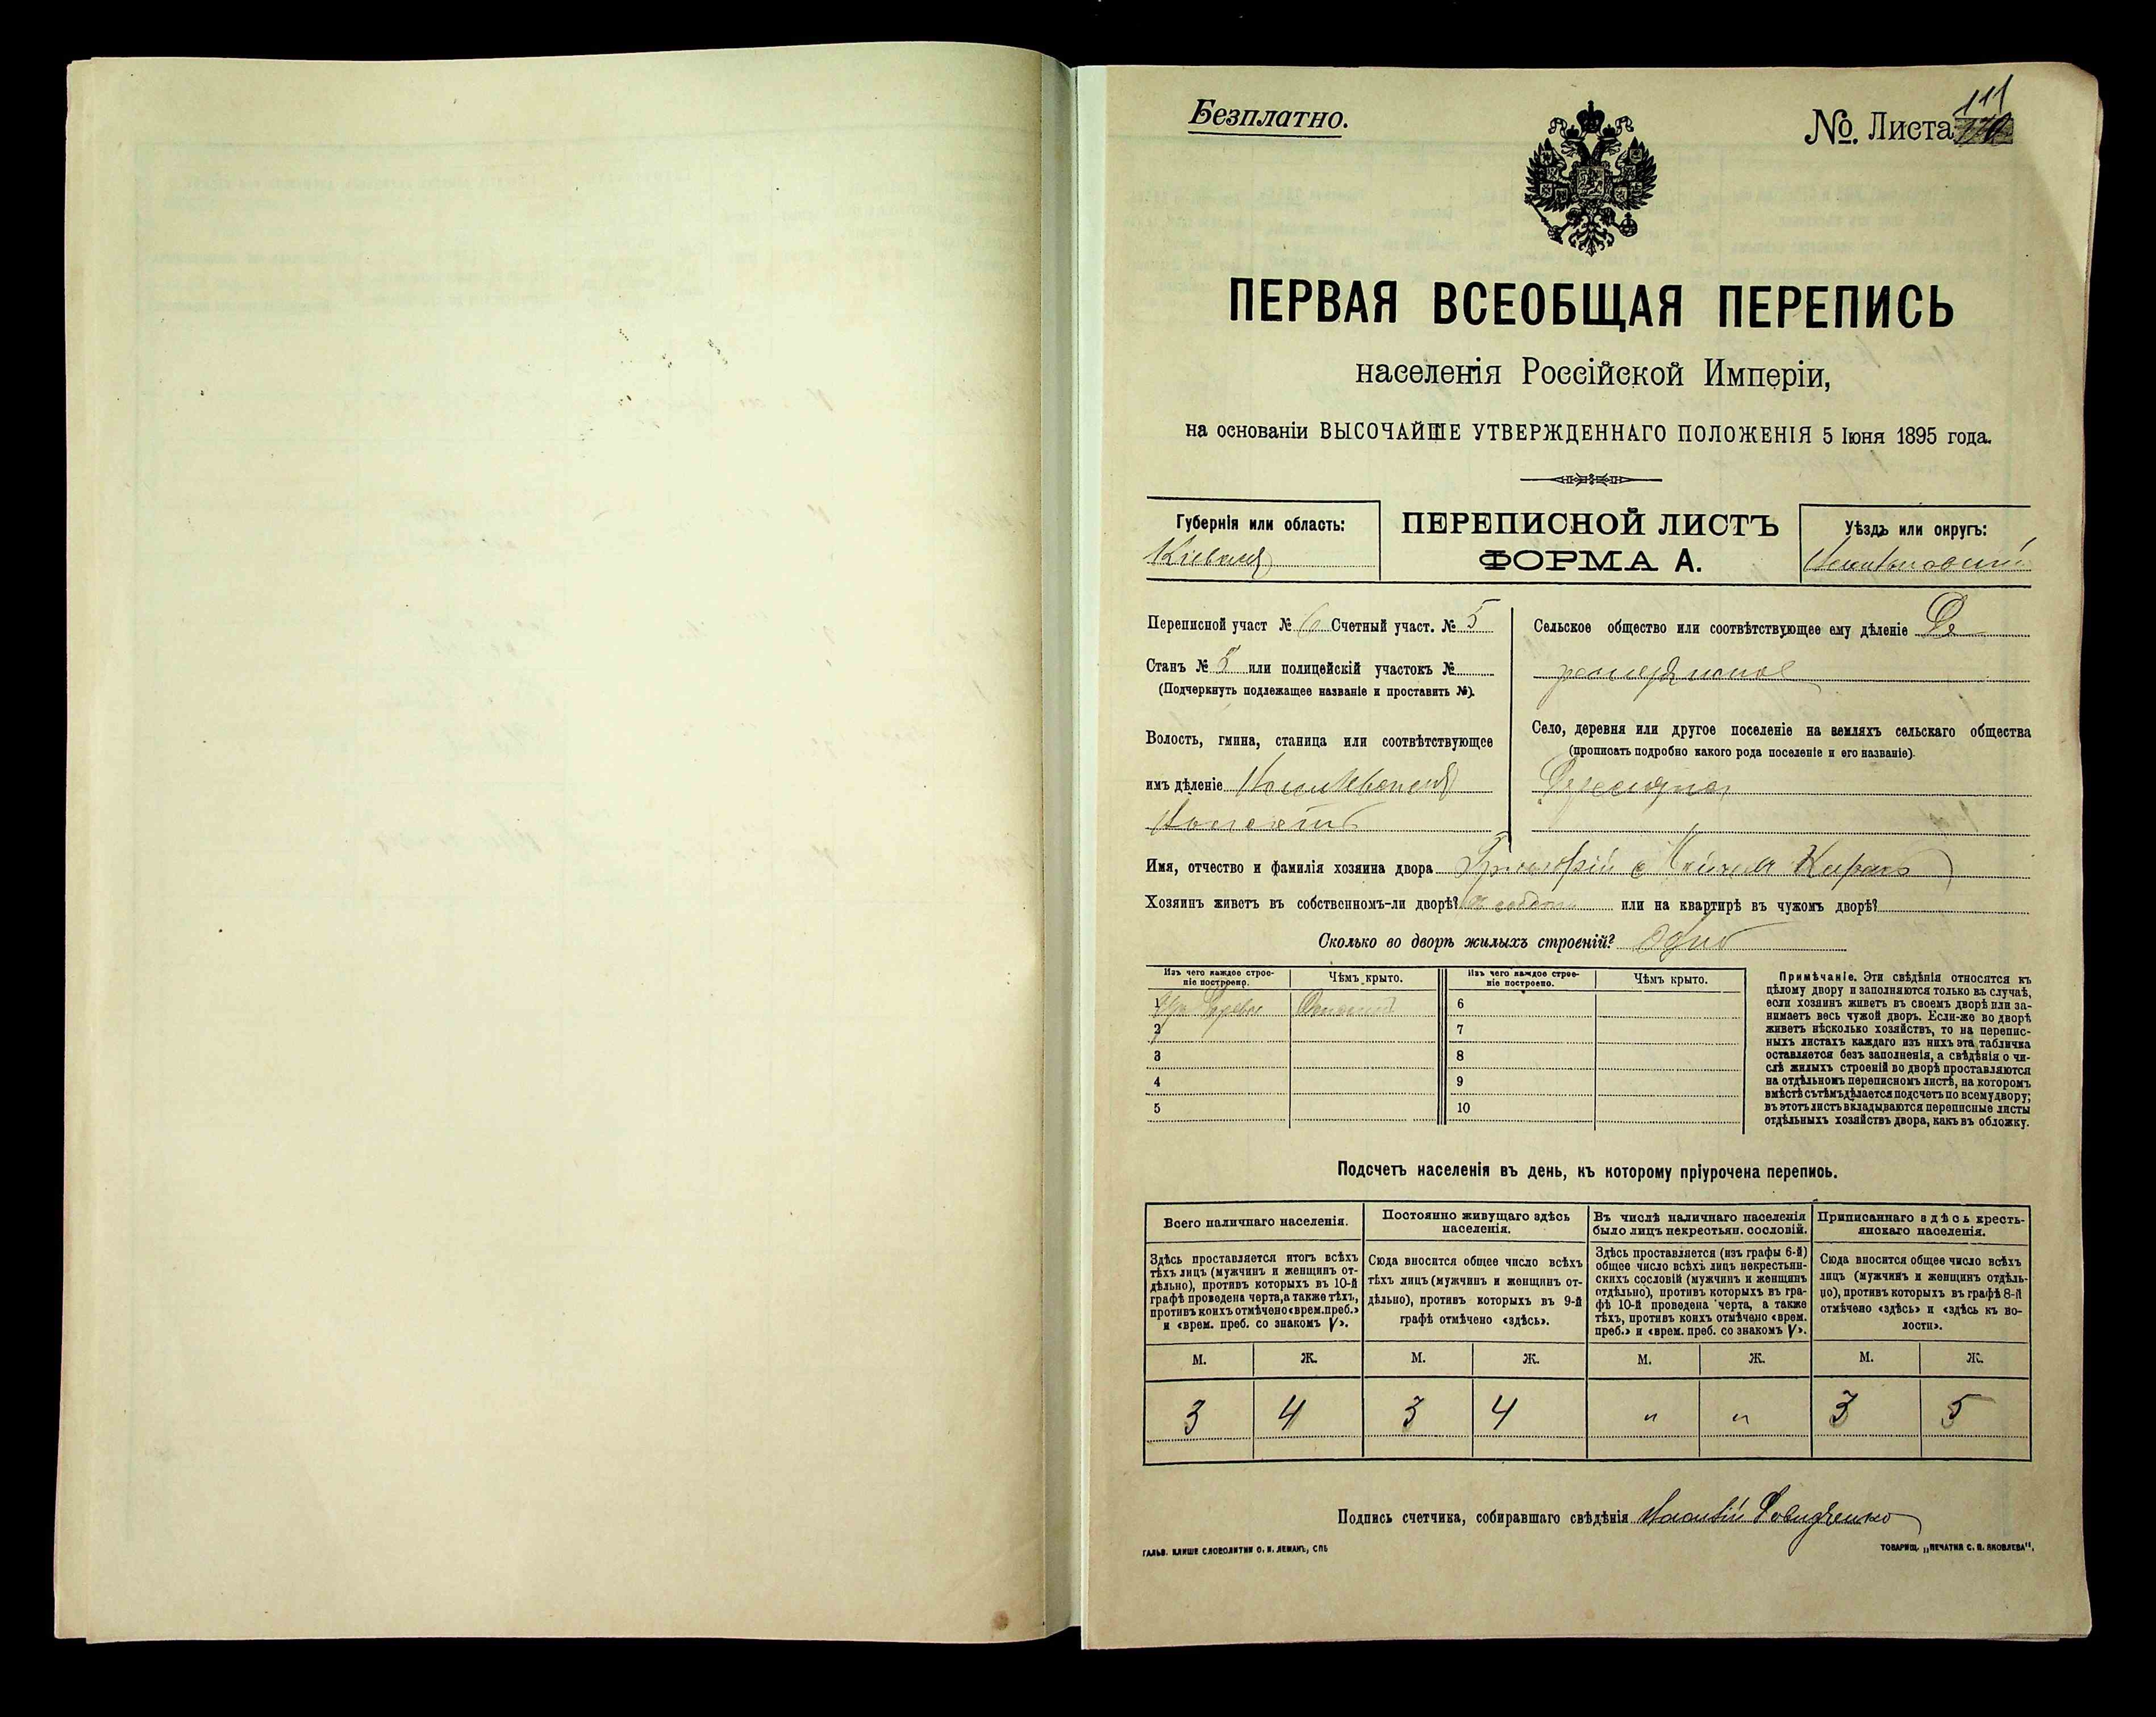 Безплатно.
№. Листа 111
ПЕРВАЯ ВСЕОБЩАЯ ПЕРЕПИСЬ
населенія Россійской Имперіи,
на основаніи ВЫСОЧАЙШЕ УТВЕРЖДЕННАГО ПОЛОЖЕНІЯ 5 Іюня 1895 года.
Губернія или область:
Кіевская
ПЕРЕПИСНОЙ ЛИСТЪ
ФОРМА А.
Уѣздъ или округъ:
Переписной участ № 6 Счетный участ. № 5
Станъ № 5 или полицейскій участокъ №
(Подчеркнуть подлежащее названіе и проставить №).
Волость, гмина, станица или соотвѣтствующее
имъ дѣленіе
Сельское общество или соотвѣтствующее ему дѣленіе
Село, деревня или другое поселеніе на земляхъ сельскаго общества
(прописать подробно какого рода поселеніе и его названіе).
Имя, отчество и фамилія хозяина двора Григорій
Хозяинъ живетъ въ собственномъ-ли дворѣ? или на квартирѣ въ чужомъ дворѣ?
Сколько во дворѣ жилыхъ строеній? Одно
Изъ чего каждое строеніе построено.
Чѣмъ крыто.
Изъ чего каждое строеніе построено.
Чѣмъ крыто.
1
2
3
4
5
6
7
8
9
10
Примѣчаніе. Эти свѣдѣнія относятся къ
цѣлому двору и заполняются только въ случаѣ,
если хозяинъ живетъ въ своемъ дворѣ или за-
нимаетъ весь чужой дворъ. Если-же во дворѣ
живетъ нѣсколько хозяйствъ, то на перепис-
ныхъ листахъ каждаго изъ нихъ эта табличка
оставляется безъ заполненія, а свѣдѣнія о чи-
слѣ жилыхъ строеній во дворѣ проставляются
на отдѣльномъ переписномъ листѣ, на которомъ
вмѣстѣ съ тѣмъ дѣлается подсчетъ по всему двору;
въ этотъ листъ вкладываются переписные листы
отдѣльныхъ хозяйствъ двора, какъ въ обложку.
Подсчетъ населенія въ день, къ которому пріурочена перепись.
Всего наличнаго населенія.
Здѣсь проставляется итогъ всѣхъ
тѣхъ лицъ (мужчинъ и женщинъ от-
дѣльно), противъ которыхъ въ 10-й
графѣ проведена черта, а также тѣхъ,
противъ коихъ отмѣчено «врем. преб.»
и «врем. преб. со знакомъ V».
Постоянно живущаго здѣсь
населенія.
Сюда вносится общее число всѣхъ
тѣхъ лицъ (мужчинъ и женщинъ от-
дѣльно), противъ которыхъ въ 9-й
графѣ отмѣчено «здѣсь».
Въ числѣ наличнаго населенія
было лицъ некрестьян. сословій.
Здѣсь проставляется (изъ графы 6-й)
общее число всѣхъ лицъ некрестьян-
скихъ сословій (мужчинъ и женщинъ
отдѣльно), противъ которыхъ въ гра-
фѣ 10-й проведена черта, а также
тѣхъ, противъ коихъ отмѣчено «врем.
преб.» и «врем. преб. со знакомъ V».
Приписаннаго здѣсь кресть-
янскаго населенія.
Сюда вносится общее число всѣхъ
лицъ (мужчинъ и женщинъ отдѣль-
но), противъ которыхъ въ графѣ 8-й
отмѣчено «здѣсь» и «здѣсь къ во-
лости».
М. Ж. М. Ж. М. Ж. М. Ж.
3 4 3 4 " " 3 5
Подпись счетчика, собиравшаго свѣдѣнія
ГАЛЬВ. КЛИШЕ СЛОВОЛИТНИ О. И. ЛЕМАНЪ, СПБ
ТОВАРИЩ. „ПЕЧАТНЯ С. П. ЯКОВЛЕВА".